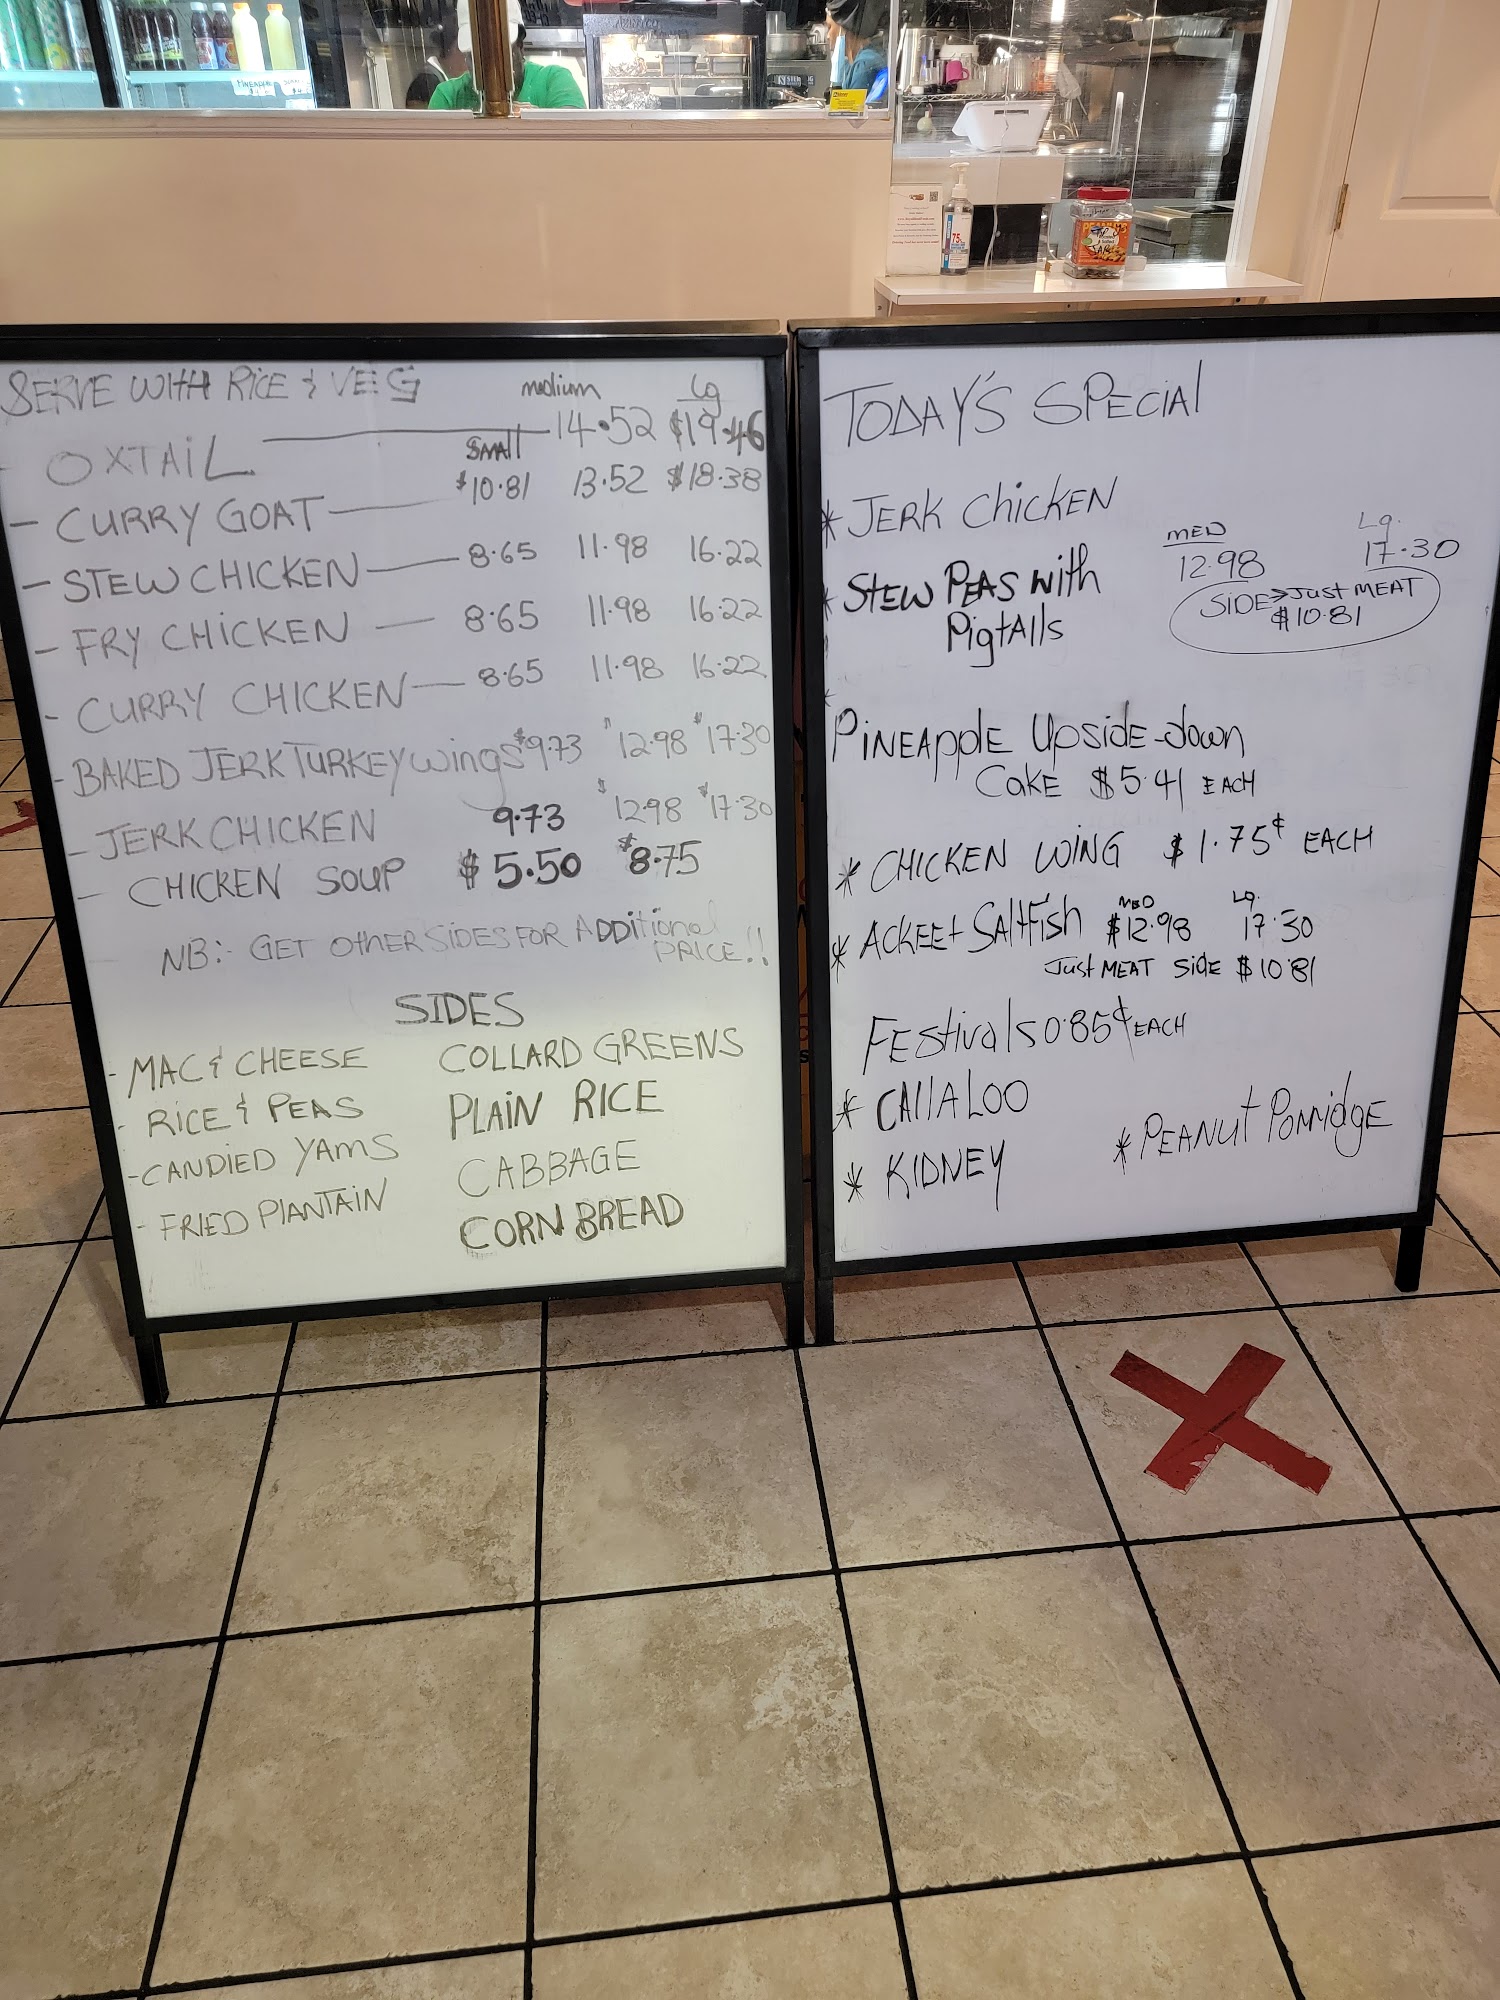 SERVE WITH RICE & VEG medium Lg
OXTAIL 14.52 $19.46
SMALL
- CURRY GOAT $10.81 13.52 $18.38
- STEW CHICKEN 8.65 11.98 16.22
- FRY CHICKEN 8.65 11.98 16.22
- CURRY CHICKEN 8.65 11.98 16.22
- BAKED JERK TURKEY wings $9.73 $12.98 $17.30
- JERK CHICKEN 9.73 $12.98 $17.30
- CHICKEN SOUP $5.50 $8.75
NB:- GET OTHER SIDES FOR ADDitional
PRICE!!
SIDES
- MAC & CHEESE COLLARD GREENS
- RICE & PEAS PLAIN RICE
- CANDIED YAMS CABBAGE
- FRIED PLANTAIN CORN BREAD
TODAY'S SPECIAL
* JERK CHICKEN
MED Lg.
* STEW PEAS with 12.98 17.30
PigtAlls
SIDE > Just MEAT
$10.81
PINEApplE Upside-down
CakE $5.41 EACH
* CHICKEN WING $1.75¢ EACH
MED Lg.
* ACKEE + SAltFish $12.98 17.30
Just MEAT SidE $10.81
FEstivals 0.85¢ EACH
* CAllALOO
* PEANut PORRidgE
* KIDNEY
PINEAPPLE
75%
PEANUTS
TIP
JAR